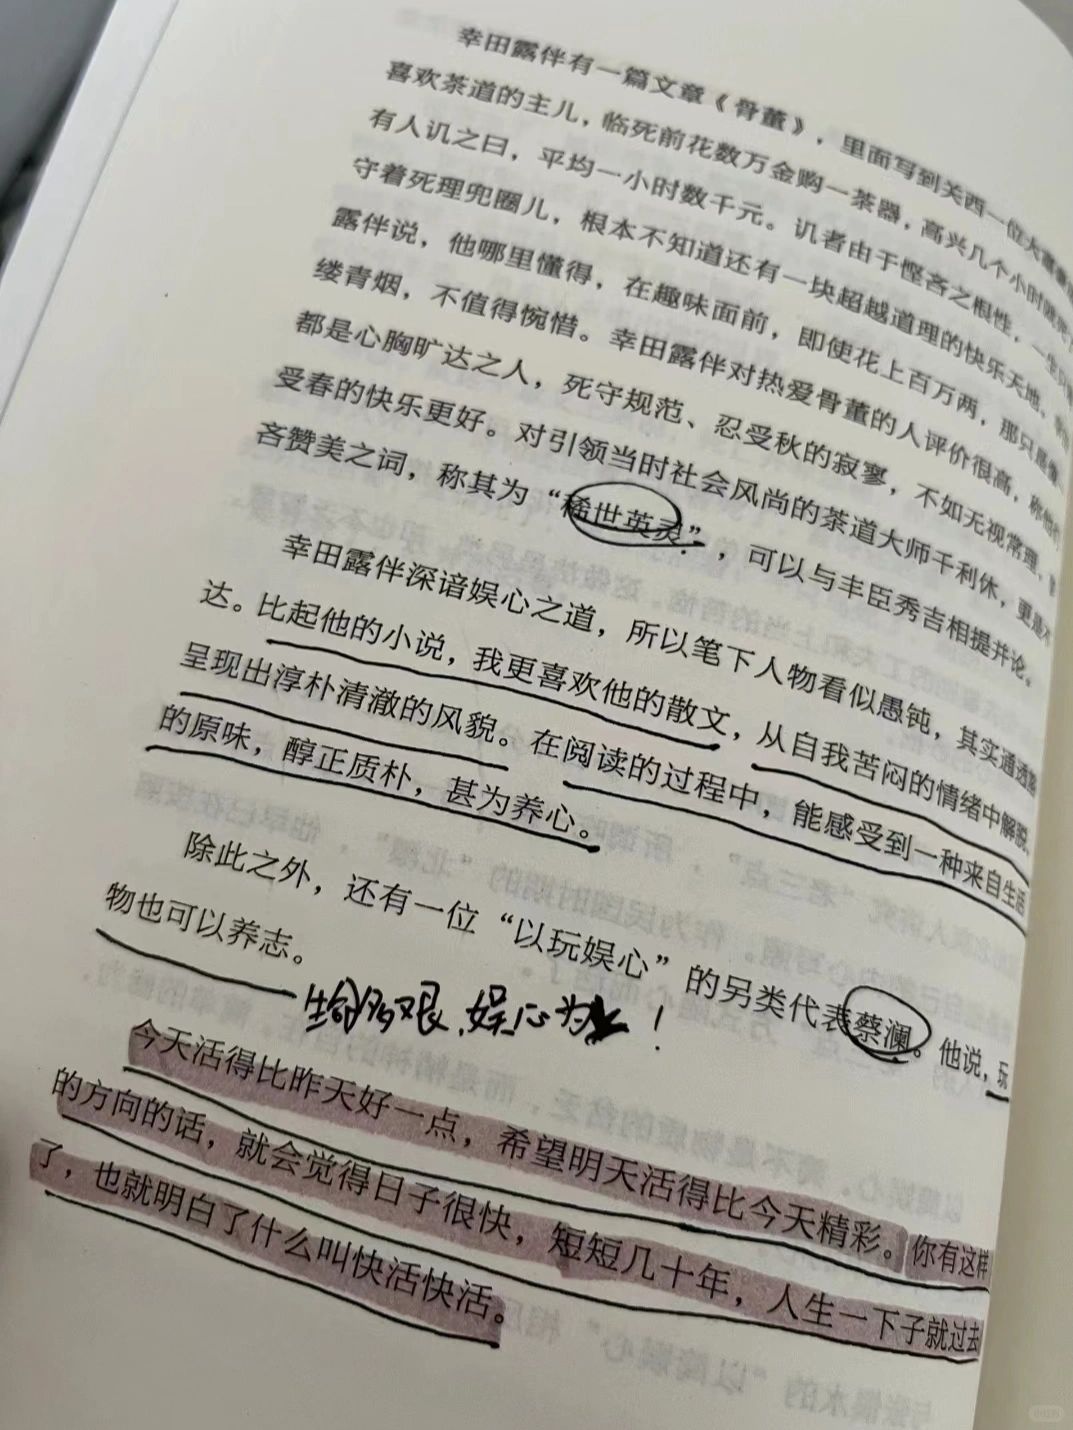 幸田露伴有一篇文章《骨董》，里面写到关西一位大富豪
喜欢茶道的主儿，临死前花数万金购一茶器，高兴几个小时就
有人讥之曰，平均一小时数千元。讥者由于悭吝之根性，一生只
守着死理兜圈儿，根本不知道还有一块超越道理的快乐天地。
露伴说，他哪里懂得，在趣味面前，即使花上百万两，那只是像
缕青烟，不值得惋惜。幸田露伴对热爱骨董的人评价很高，称他们
都是心胸旷达之人，死守规范、忍受秋的寂寥，不如无视常理，
受春的快乐更好。对引领当时社会风尚的茶道大师千利休，更是不
吝赞美之词，称其为“稀世英灵”，可以与丰臣秀吉相提并论。
幸田露伴深谙娱心之道，所以笔下人物看似愚钝，其实通透豁
达。比起他的小说，我更喜欢他的散文，从自我苦闷的情绪中解脱，
呈现出淳朴清澈的风貌。在阅读的过程中，能感受到一种来自生活
的原味，醇正质朴，甚为养心。
除此之外，还有一位“以玩娱心”的另类代表蔡澜。他说，玩
物也可以养志。
娱心为上！
今天活得比昨天好一点，希望明天活得比今天精彩。你有这样
的方向的话，就会觉得日子很快，短短几十年，人生一下子就过去
了，也就明白了什么叫快活快活。
小红书